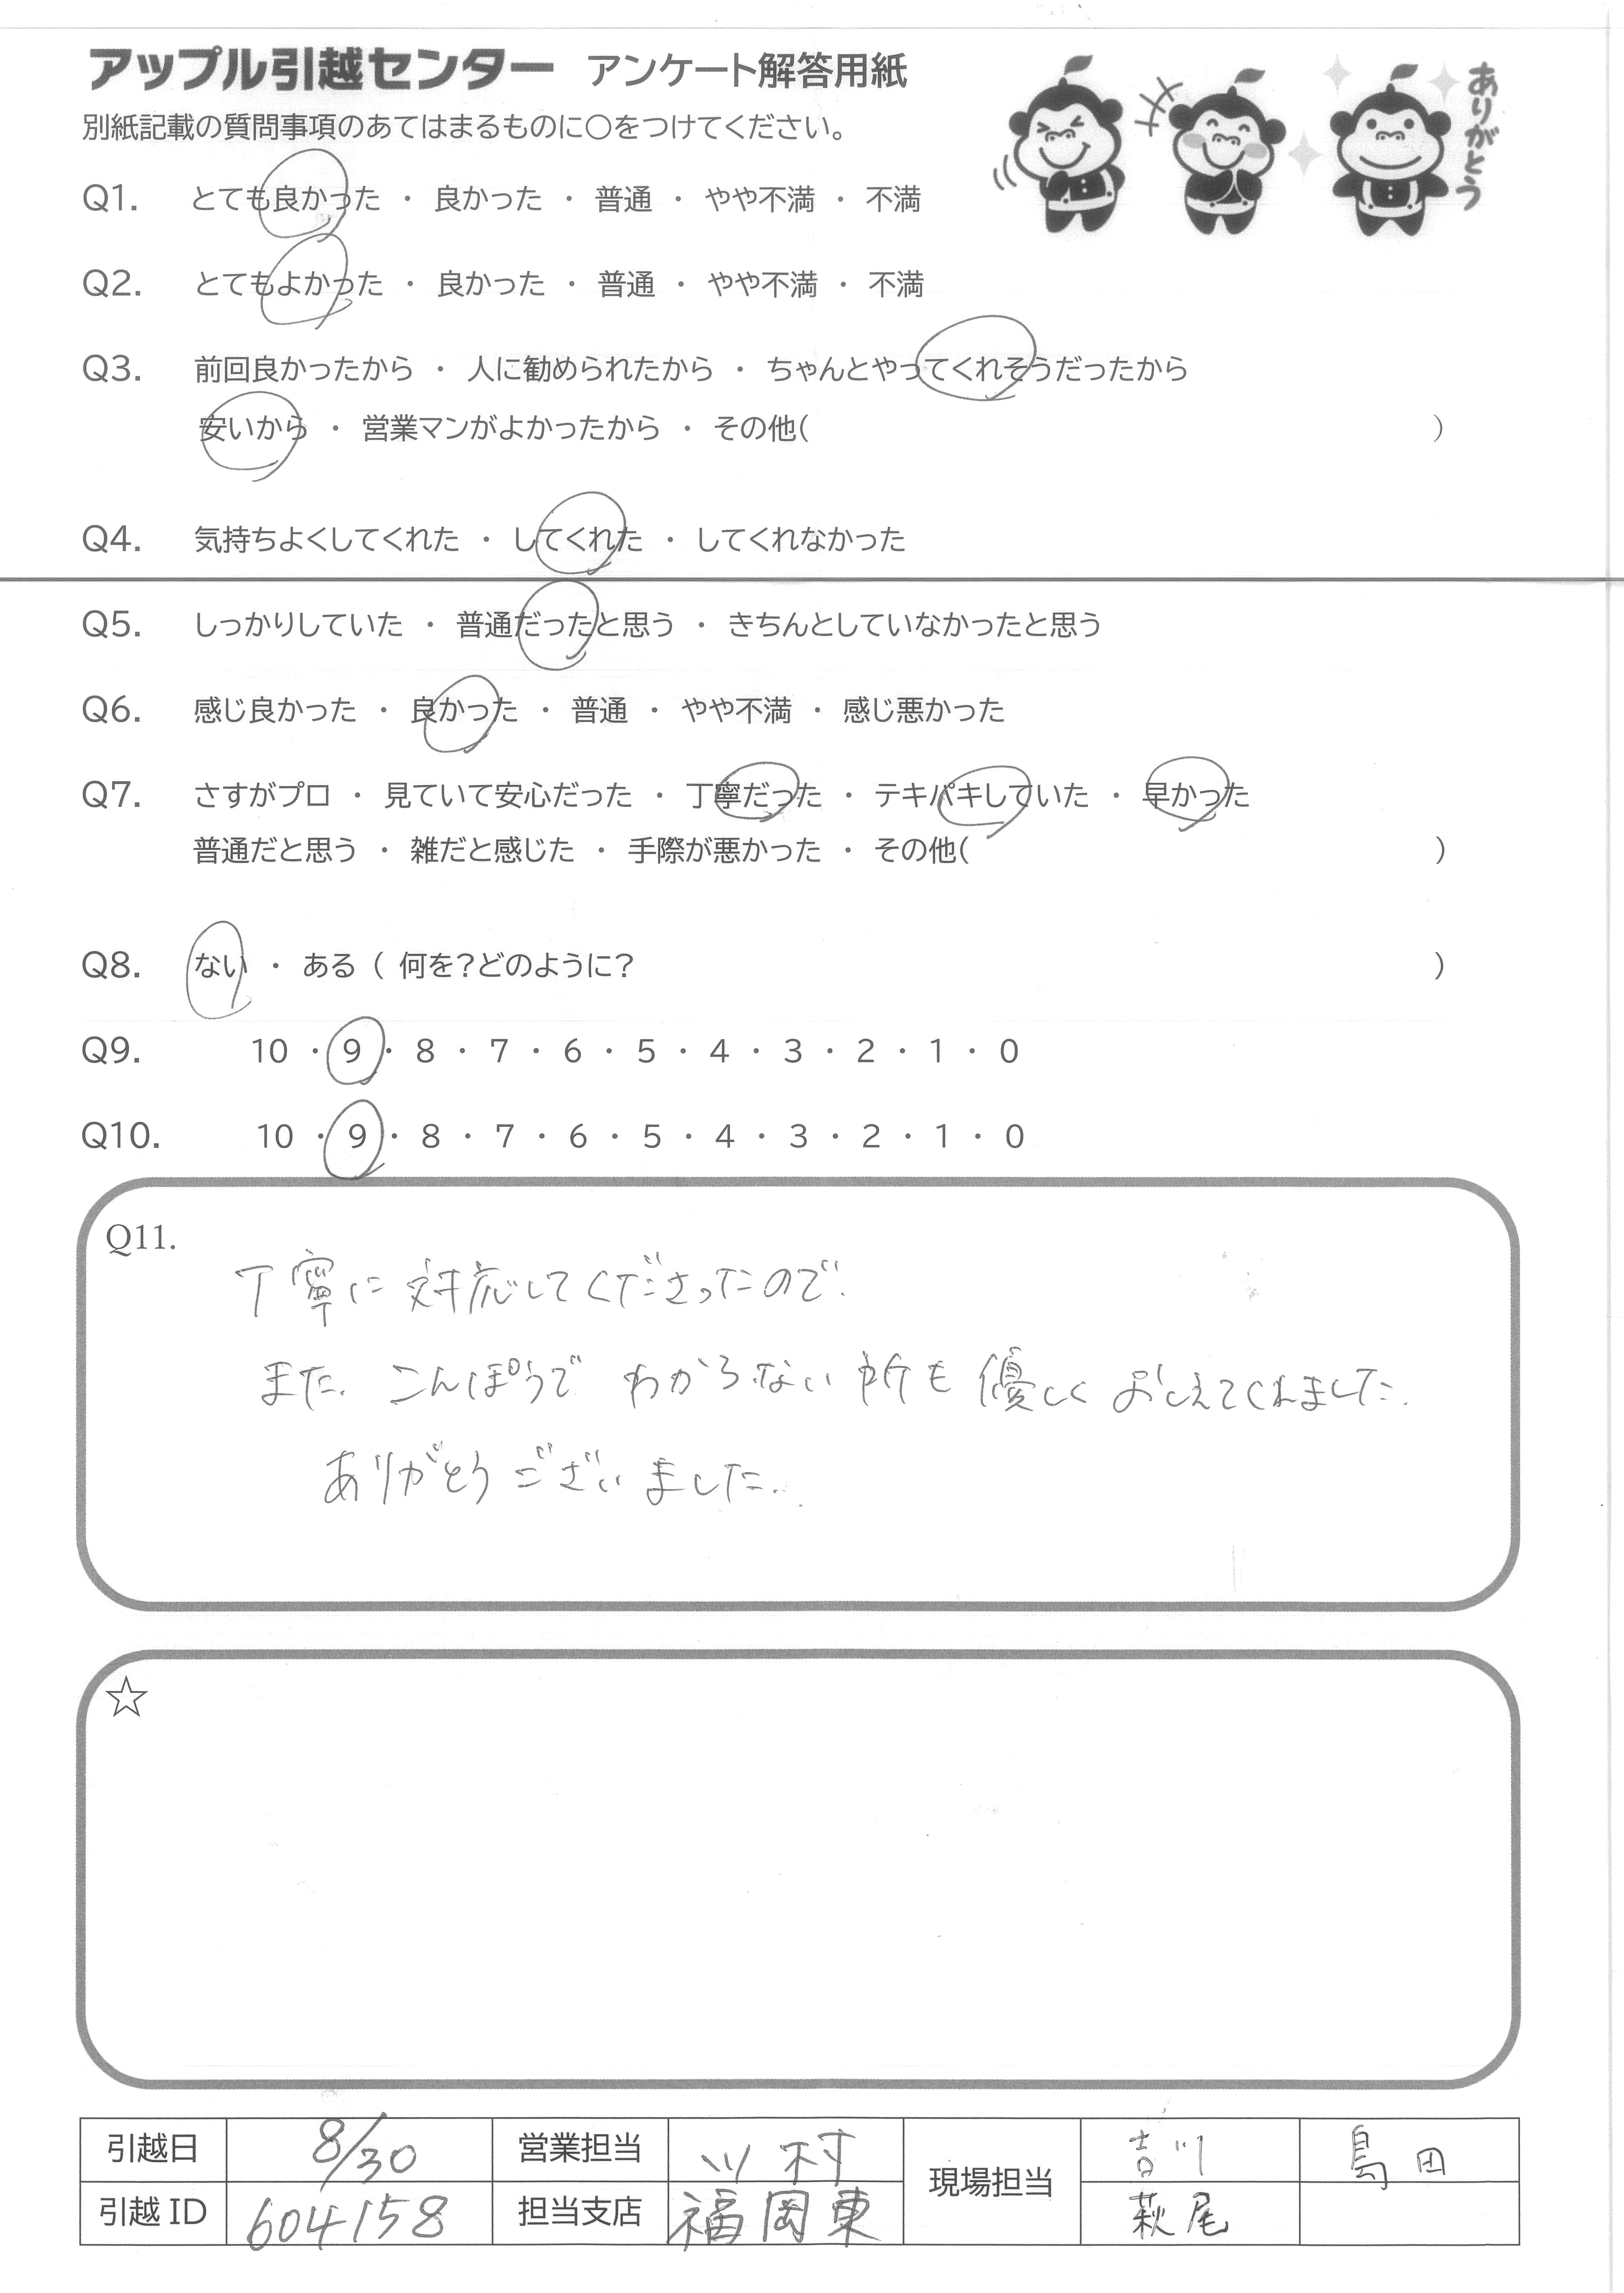 アップル引越センター アンケート解答用紙
ありがとう
別紙記載の質問事項のあてはまるものに○をつけてください。
Q1. とても良かった ・ 良かった ・ 普通 ・ やや不満 ・ 不満
Q2. とてもよかった ・ 良かった ・ 普通 ・ やや不満 ・ 不満
Q3. 前回良かったから ・ 人に勧められたから ・ ちゃんとやってくれそうだったから
安いから ・ 営業マンがよかったから ・ その他( )
Q4. 気持ちよくしてくれた ・ してくれた ・ してくれなかった
Q5. しっかりしていた ・ 普通だったと思う ・ きちんとしていなかったと思う
Q6. 感じ良かった ・ 良かった ・ 普通 ・ やや不満 ・ 感じ悪かった
Q7. さすがプロ ・ 見ていて安心だった ・ 丁寧だった ・ テキパキしていた ・ 早かった
普通だと思う ・ 雑だと感じた ・ 手際が悪かった ・ その他( )
Q8. ない ・ ある ( 何を？どのように？ )
Q9. 10 ・ 9 ・ 8 ・ 7 ・ 6 ・ 5 ・ 4 ・ 3 ・ 2 ・ 1 ・ 0
Q10. 10 ・ 9 ・ 8 ・ 7 ・ 6 ・ 5 ・ 4 ・ 3 ・ 2 ・ 1 ・ 0
Q11.
丁寧に対応してくださったので.
また. こんぽうで わからない所も優しくおしえてくれました.
ありがとうございました.
☆
引越日 8/30 営業担当 川村 現場担当 吉川 島田
引越 ID 604158 担当支店 福岡東 萩尾